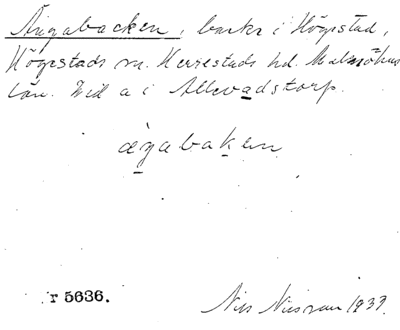 Ängabacken, backe i Högestad,
Högestads sn. Herrestads hd. Malmöhus
län. Eld a i Allevadstorp.
ægabaken
r 5636.
Nils Nilsson 1933.